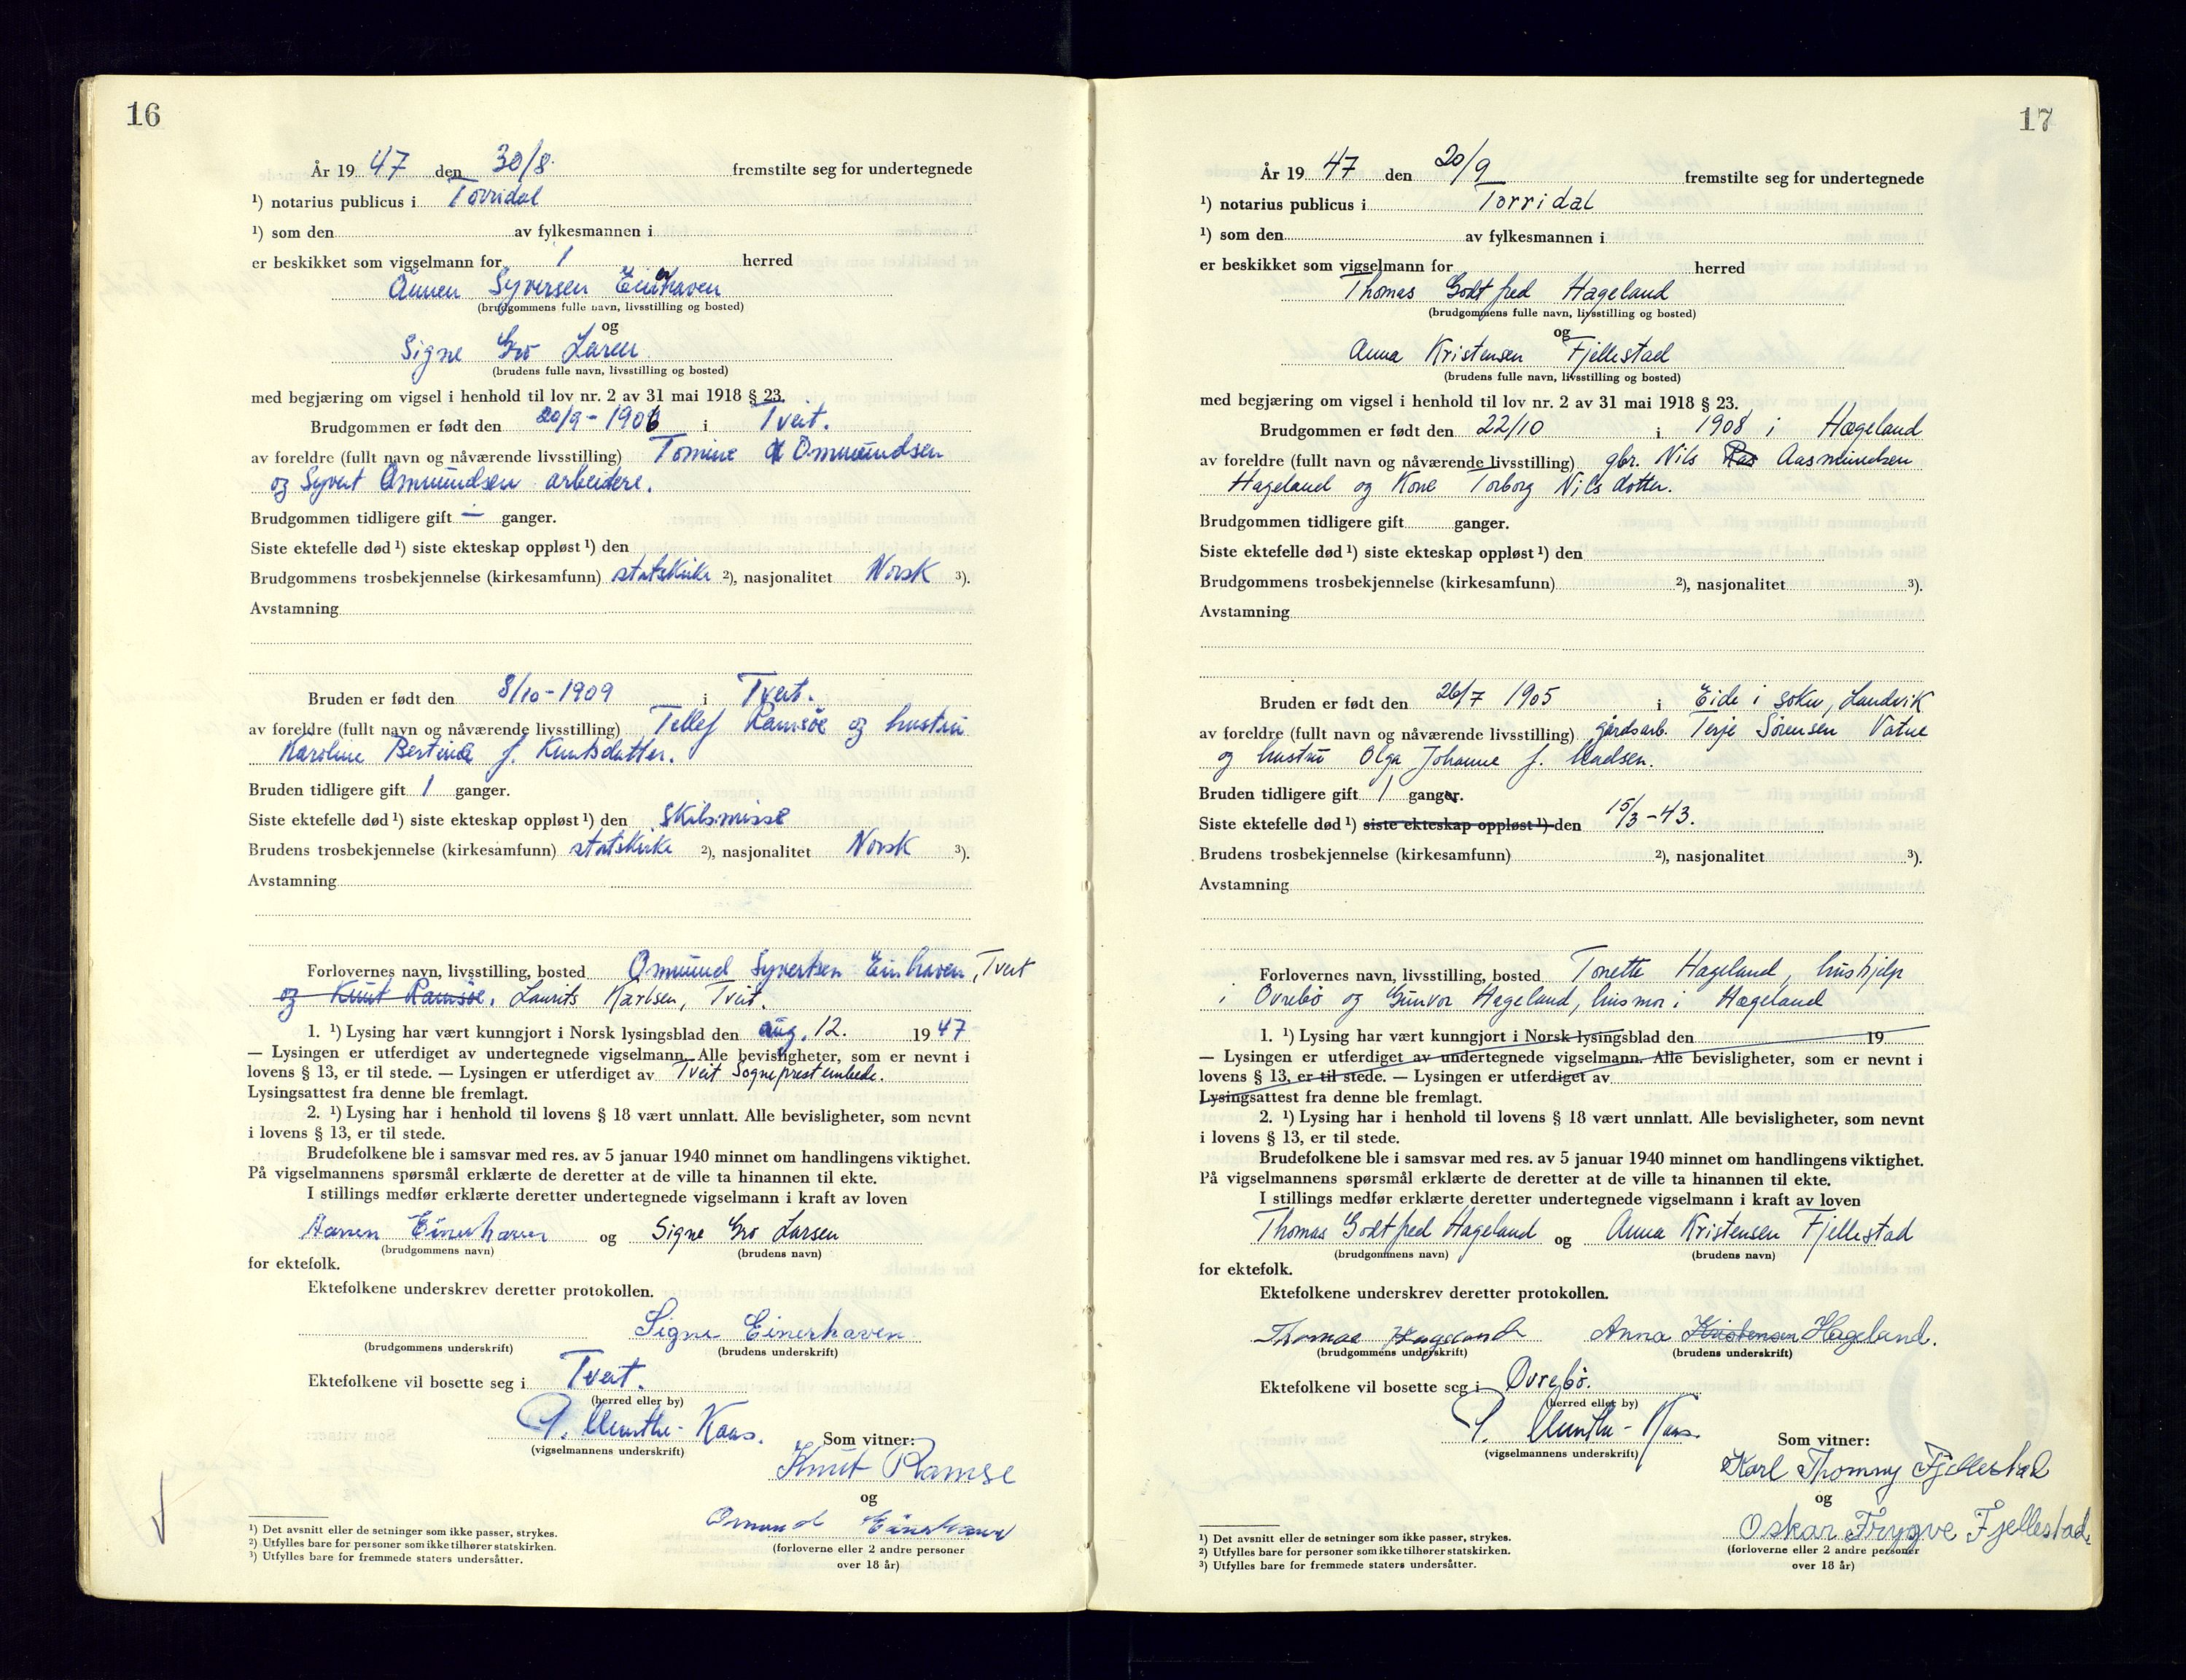 16
År 19 47 den 30/8 fremstilte seg for undertegnede
¹) notarius publicus i Torridal
¹) som den av fylkesmannen i
er beskikket som vigselmann for 1 herred
Ånen Syversen Einerhaven
(brudgommens fulle navn, livsstilling og bosted)
og
Signe Gro Larsen
(brudens fulle navn, livsstilling og bosted)
med begjæring om vigsel i henhold til lov nr. 2 av 31 mai 1918 § 23.
Brudgommen er født den 20/9 - 1906 i Tveit.
av foreldre (fullt navn og nåværende livsstilling) Tomine Omundsen
og Syvert Omundsen arbeidere.
Brudgommen tidligere gift — ganger.
Siste ektefelle død ¹) siste ekteskap oppløst ¹) den
Brudgommens trosbekjennelse (kirkesamfunn) statskirke ²), nasjonalitet Norsk ³).
Avstamning
Bruden er født den 8/10 - 1909 i Tveit.
av foreldre (fullt navn og nåværende livsstilling) Tellef Ramsøe og hustru
Karoline Bertine f. Knutsdatter.
Bruden tidligere gift 1 ganger.
Siste ektefelle død ¹) siste ekteskap oppløst ¹) den skilsmisse
Brudens trosbekjennelse (kirkesamfunn) statskirke ²), nasjonalitet Norsk ³).
Avstamning
Forlovernes navn, livsstilling, bosted Omund Syvertsen Einhaven, Tveit
og Knut Ramsøe, Laurits Karlsen, Tveit.
1. ¹) Lysing har vært kunngjort i Norsk lysingsblad den aug. 12. 19 47
— Lysingen er utferdiget av undertegnede vigselmann. Alle bevisligheter, som er nevnt i
lovens § 13, er til stede. — Lysingen er utferdiget av Tveit Sogneprestembede.
Lysingsattest fra denne ble fremlagt.
2. ¹) Lysing har i henhold til lovens § 18 vært unnlatt. Alle bevisligheter, som nevnt
i lovens § 13, er til stede.
Brudefolkene ble i samsvar med res. av 5 januar 1940 minnet om handlingens viktighet.
På vigselmannens spørsmål erklærte de deretter at de ville ta hinannen til ekte.
I stillings medfør erklærte deretter undertegnede vigselmann i kraft av loven
Aanen Einerhaven og Signe Gro Larsen
(brudgommens navn) (brudens navn)
for ektefolk.
Ektefolkene underskrev deretter protokollen.
Signe Einerhaven
(brudgommens underskrift) (brudens underskrift)
Ektefolkene vil bosette seg i Tveit.
(herred eller by)
P. Munthe-Kaas.
(vigselmannens underskrift)
Som vitner:
Knut Ramse
og
Omund Einerhaven
(forloverne eller 2 andre personer
over 18 år)
¹) Det avsnitt eller de setninger som ikke passer, strykes.
²) Utfylles bare for personer som ikke tilhører statskirken.
³) Utfylles bare for fremmede staters undersåtter.
17
År 19 47 den 20/9 fremstilte seg for undertegnede
¹) notarius publicus i Torridal
¹) som den av fylkesmannen i
er beskikket som vigselmann for herred
Thomas Godtfred Hageland
(brudgommens fulle navn, livsstilling og bosted)
og
Anna Kristensen Fjellestad
(brudens fulle navn, livsstilling og bosted)
med begjæring om vigsel i henhold til lov nr. 2 av 31 mai 1918 § 23.
Brudgommen er født den 22/10 i 1908 i Hægeland
av foreldre (fullt navn og nåværende livsstilling) gbr. Nils Ras Aasmundsen
Hageland og Kone Torborg Nilsdotter.
Brudgommen tidligere gift ganger.
Siste ektefelle død ¹) siste ekteskap oppløst ¹) den
Brudgommens trosbekjennelse (kirkesamfunn) ²), nasjonalitet ³).
Avstamning
Bruden er født den 26/7 1905 i Eide i sokn, Landvik
av foreldre (fullt navn og nåværende livsstilling) gårdsarb. Terje Sørensen Vatne
og hustru Olga Johanne f. Madsen.
Bruden tidligere gift 1 ganger.
Siste ektefelle død ¹) siste ekteskap oppløst ¹) den 15/3-43.
Brudens trosbekjennelse (kirkesamfunn) ²), nasjonalitet ³).
Avstamning
Forlovernes navn, livsstilling, bosted Tonette Hageland, hushjelp
i Øvrebø og Gunvor Hageland, husmor i Hægeland
1. ¹) Lysing har vært kunngjort i Norsk lysingsblad den 19
— Lysingen er utferdiget av undertegnede vigselmann. Alle bevisligheter, som er nevnt i
lovens § 13, er til stede. — Lysingen er utferdiget av
Lysingsattest fra denne ble fremlagt.
2. ¹) Lysing har i henhold til lovens § 18 vært unnlatt. Alle bevisligheter, som nevnt
i lovens § 13, er til stede.
Brudefolkene ble i samsvar med res. av 5 januar 1940 minnet om handlingens viktighet.
På vigselmannens spørsmål erklærte de deretter at de ville ta hinannen til ekte.
I stillings medfør erklærte deretter undertegnede vigselmann i kraft av loven
Thomas Godtfred Hageland og Anna Kristensen Fjellestad
(brudgommens navn) (brudens navn)
for ektefolk.
Ektefolkene underskrev deretter protokollen.
Thomas Hageland Anna Kristensen Hageland.
(brudgommens underskrift) (brudens underskrift)
Ektefolkene vil bosette seg i Øvrebø.
(herred eller by)
P. Munthe-Kaas.
(vigselmannens underskrift)
Som vitner:
Karl Thommy Fjellestad
og
Oskar Trygve Fjellestad
(forloverne eller 2 andre personer
over 18 år)
¹) Det avsnitt eller de setninger som ikke passer, strykes.
²) Utfylles bare for personer som ikke tilhører statskirken.
³) Utfylles bare for fremmede staters undersåtter.